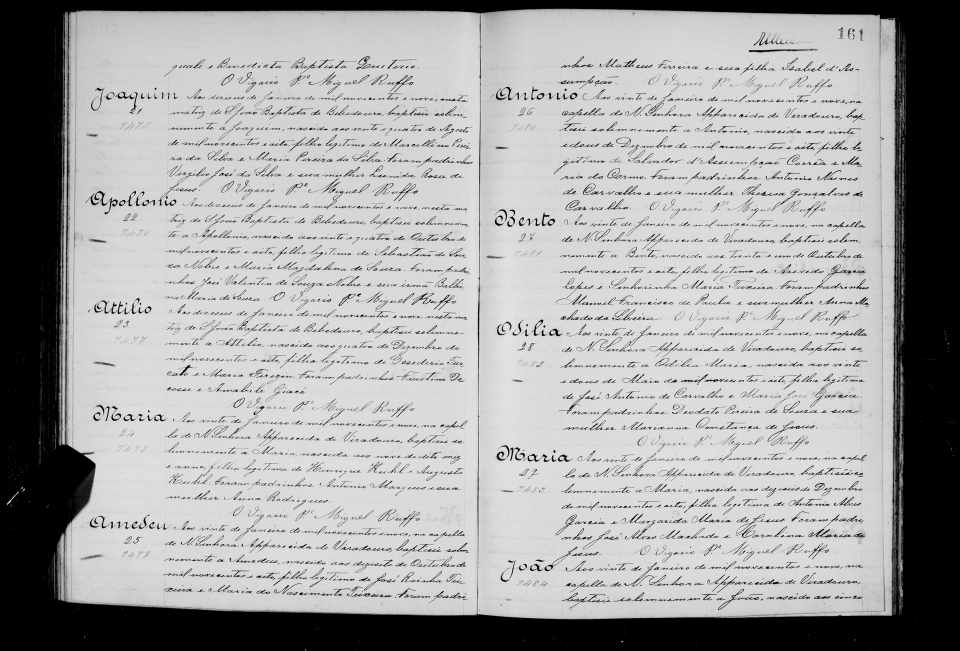 quale e Benedicta Baptista Euterio
O Vigario Pe Miguel Ruffo
Joaquim
21
7475
Aos dezeseis de Janeiro de mil novecentos e nove, nesta
matriz de S. João Baptista de Bebedouro, baptisei solem-
nemente a Joaquim, nascido aos vinte e quatro de Agosto
de mil novecentos e sete, filho legitimo de Marcellino Perei-
ra da Silva e Maria Pereira da Silva. Foram padrinhos
Virgilio José da Silva e sua mulher Leonida Rosa de
Jesus. O Vigario Pe Miguel Ruffo
Apollonio
22
7476
Aos dezeseis de Janeiro de mil novecentos e nove, nesta ma-
triz de S. João Baptista de Bebedouro, baptisei solemnemen-
te a Apollonio, nascido aos vinte e quatro de Outubro de
mil novecentos e sete, filho legitimo de Sebastião de Sou-
za Nobre e Maria Magdalena de Souza. Foram padri-
nhos José Valentin de Souza Nobre e sua irmã Balbi-
na Maria de Souza O Vigario Pe Miguel Ruffo
Attilio
23
7477
Aos dezeseis de Janeiro de mil novecentos e nove nesta ma-
triz de S. João Baptista de Bebedouro, baptisei solemne-
mente a Attilio, nascido aos quatro de Dezembro de
mil novecentos e sete, filho legitimo de Desederio
e Maria Foram padrinhos Faustino
e Annabile
O Vigario Pe Miguel Ruffo
Maria
24
7478
Aos vinte de Janeiro de mil novecentos e nove, na capel-
la de N. Senhora Apparecida de Viradouro, baptisei so-
lemnemente a Maria, nascida aos nove de
e anno, filha legitima de Henrique Kuhl e Augusta
Kuhl. Foram padrinhos Antonio Marques e sua
mulher Anna Rodrigues
O Vigario Pe Miguel Ruffo
Amedeu
25
7479
Aos vinte de Janeiro de mil novecentos e nove, na capella
de N. Senhora Apparecida de Viradouro, baptisei solem-
nemente a Amedeu, nascido aos dezoito de Outubro de
mil novecentos e sete, filho legitimo de José Rainha Tei-
xeira e Maria do Nascimento Teixeira. Foram padri-
161
nhos Matheus Pereira e sua filha Isabel d'As-
sumpção. O Vigario Pe Miguel Ruffo
Antonio
26
7480
Aos vinte de Janeiro de mil novecentos e nove, na
capella de N. Senhora Apparecida de Viradouro, bap-
tisei solemnemente a Antonio, nascido aos vinte
e dous de Dezembro de mil novecentos e sete, filho le-
gitimo de Salvador d'Assumpção Correia e Ma-
ria do Carmo. Foram padrinhos Antonio Nunes
de Carvalho e sua mulher Theresa Gonçalves de
Carvalho. O Vigario Pe Miguel Ruffo
Bento
27
7481
Aos vinte de Janeiro de mil novecentos e nove, na capella
de N. Senhora Apparecida de Viradouro, baptisei solem-
nemente a Bento, nascido aos trinta e um de Outubro de
mil novecentos e sete, filho legitimo de Azevedo Garcia
Lopes e Senhorinha Maria Teixeira. Foram padrinhos
Manuel Francisco de Paula e sua mulher Anna Ma-
chado de Oliveira O Vigario Pe Miguel Ruffo
Osilia
28
7482
Aos vinte de Janeiro de mil novecentos e nove, na capella
de N. Senhora Apparecida de Viradouro, baptisei so-
lemnemente a Odilia Maria, nascida aos vinte
e dous de Maio de mil novecentos e sete, filha legitima
de José Antonio de Carvalho e Maria José Garcia
Foram padrinhos Deodato Pereira de Souza e sua
mulher Marianna Constança de Jesus.
O Vigario Pe Miguel Ruffo
Maria
27
7483
Aos vinte de Janeiro de mil novecentos e nove, na capel-
la de N. Senhora Apparecida de Viradouro baptisei so-
lemnemente a Maria, nascida aos dezeseis de Dezembro
de mil novecentos e sete, filha legitima de Antonio Alves
Garcia e Margarida Maria de Jesus. Foram padri-
nhos José Alves Machado e Carolina Maria de
Jesus. O Vigario Pe Miguel Ruffo
João
7484
Aos vinte de Janeiro de mil novecentos e nove, na
capella de N. Senhora Apparecida de Viradouro,
baptisei solemnemente a João, nascido aos cinco